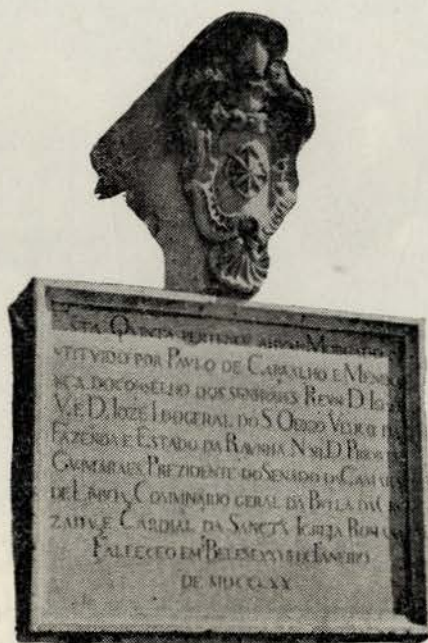 ESTA QVINTA PERTENCE AHVM MORGADO
STITVIDO POR PAVLO DE CARVALHO E MENDO
NCA DOCONSELHO DOS SENHORES REYS D. IOAO
V. E D. IOZE I DOGERAL DO S. OFICIO
FAZENDA E ESTADO DA RAYNHA N. D. PRIOR
GVIMARAES, PREZIDENTE DO SENADO DA CAMARA
DE LISBOA, COMMISARIO GERAL DA BVLLA DA CRV
ZADA, E CARDIAL DA SANCTA IGREJA ROMANA
FALLECEO EM BELEM DE IANEIRO
DE MDCCLXX